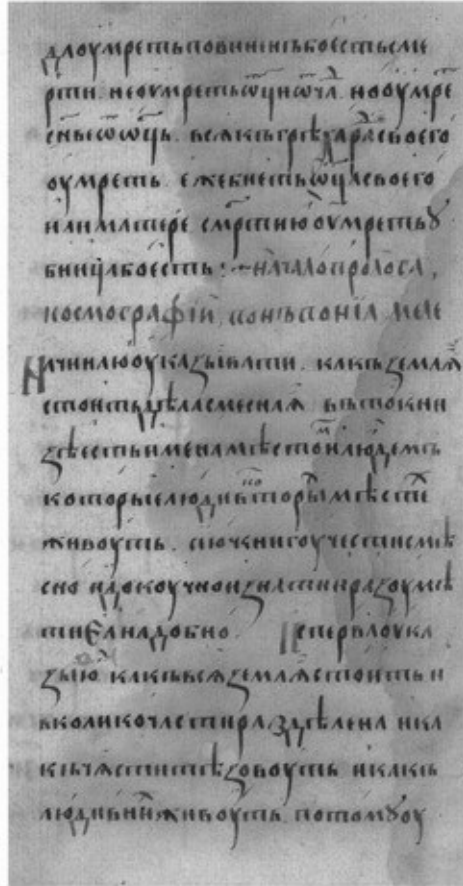 длоумреть повиненъ боесть сме
рти. не оумреть ѿц҃ и ѿ чл. но оумре
с҃нъ ѿ ѿц҃ь. всякъ грѣха ради своего
оумреть. еже биеть ѿц҃а своего
или матере см҃ртию оумреть ꙋ
бийца боесть: начало пролога,
космографіи, помпонїа меле
Начинаю оуказывати. какъ земля
стоитъ
ѕѣ есть имена мѣстом и людемъ
которые люди в котором мѣсте
живоуть. сию книгоу чести
сно а докоучно и знати и разоумѣ
ти еа надобно  и сперва оука
зыю какъ вся земля стоить и
в колико части раздѣлена и ка
къ части тѣ зовоуть и какъ
люди в ни живоуть. потомꙋ оу